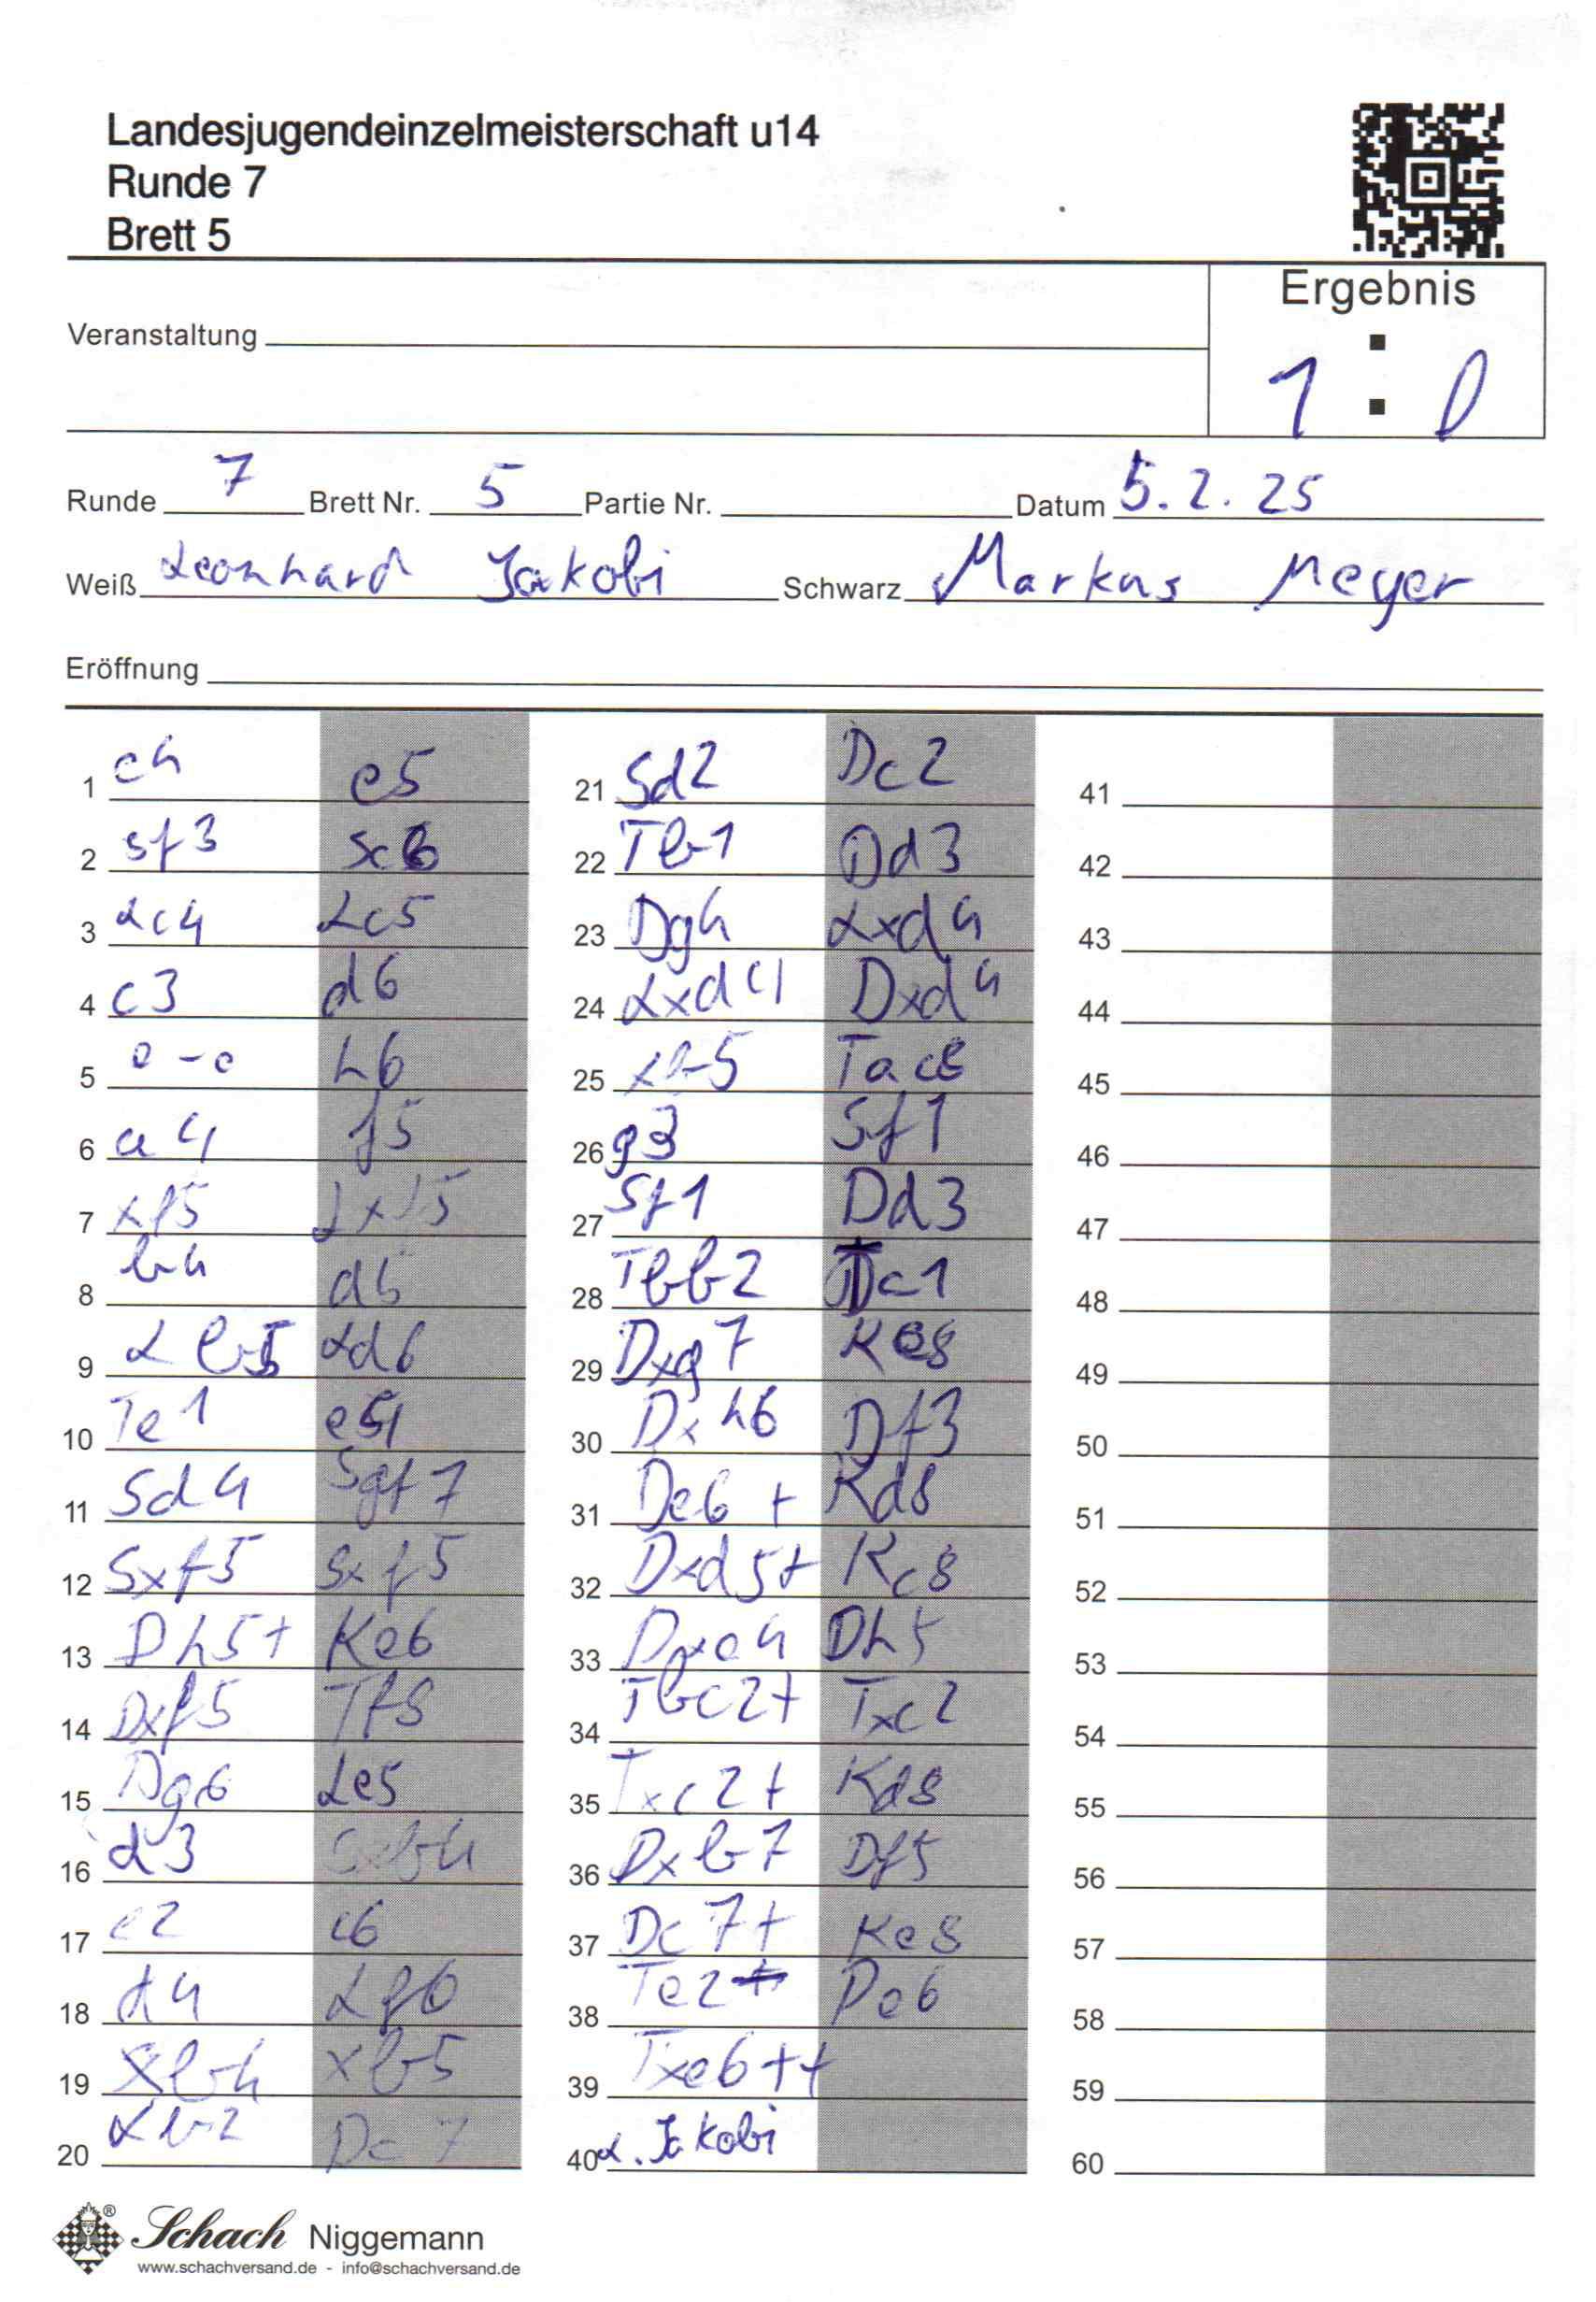 Landesjugendeinzelmeisterschaft u14
Runde 7
Brett 5
Ergebnis
1 : 0
Veranstaltung
Runde 7 Brett Nr. 5 Partie Nr. Datum 5.2.25
Weiß Leonhard Jakobi Schwarz Markus Meyer
Eröffnung
1 e4 e5
2 sf3 sc6
3 Lc4 Lc5
4 c3 d6
5 o-o h6
6 a4 f5
7 xf5 Lxf5
8 b4 d5
9 Lb5 Ld6
10 Te1 e4
11 Sd4 Sge7
12 Sxf5 Sxf5
13 Dh5+ Ke6
14 Dxf5 Tf8
15 Dg6 Le5
16 d3
17 c6
18 d4 Lf6
19 xb4 xb5
20 Lb2 Dc7
21 Sd2 Dc2
22 Tb1 Dd3
23 Dg4 Lxd4
24 Lxd4 Dxd4
25 xb5 Tac8
26 g3 Sf1
27 Sf1 Dd3
28 Tbb2 Tc1
29 Dxg7 Ke8
30 Dxh6 Df3
31 De6+ Kd8
32 Dxd5+ Kc8
33 Dxe4 Dh5
34 Tbc2+ Txc2
35 Txc2+ Kd8
36 Dxb7 Df5
37 Dc7+ Ke8
38 Te2 De6
39 Txe6++
40 L. Jakobi
41
42
43
44
45
46
47
48
49
50
51
52
53
54
55
56
57
58
59
60
Schach Niggemann
www.schachversand.de - info@schachversand.de